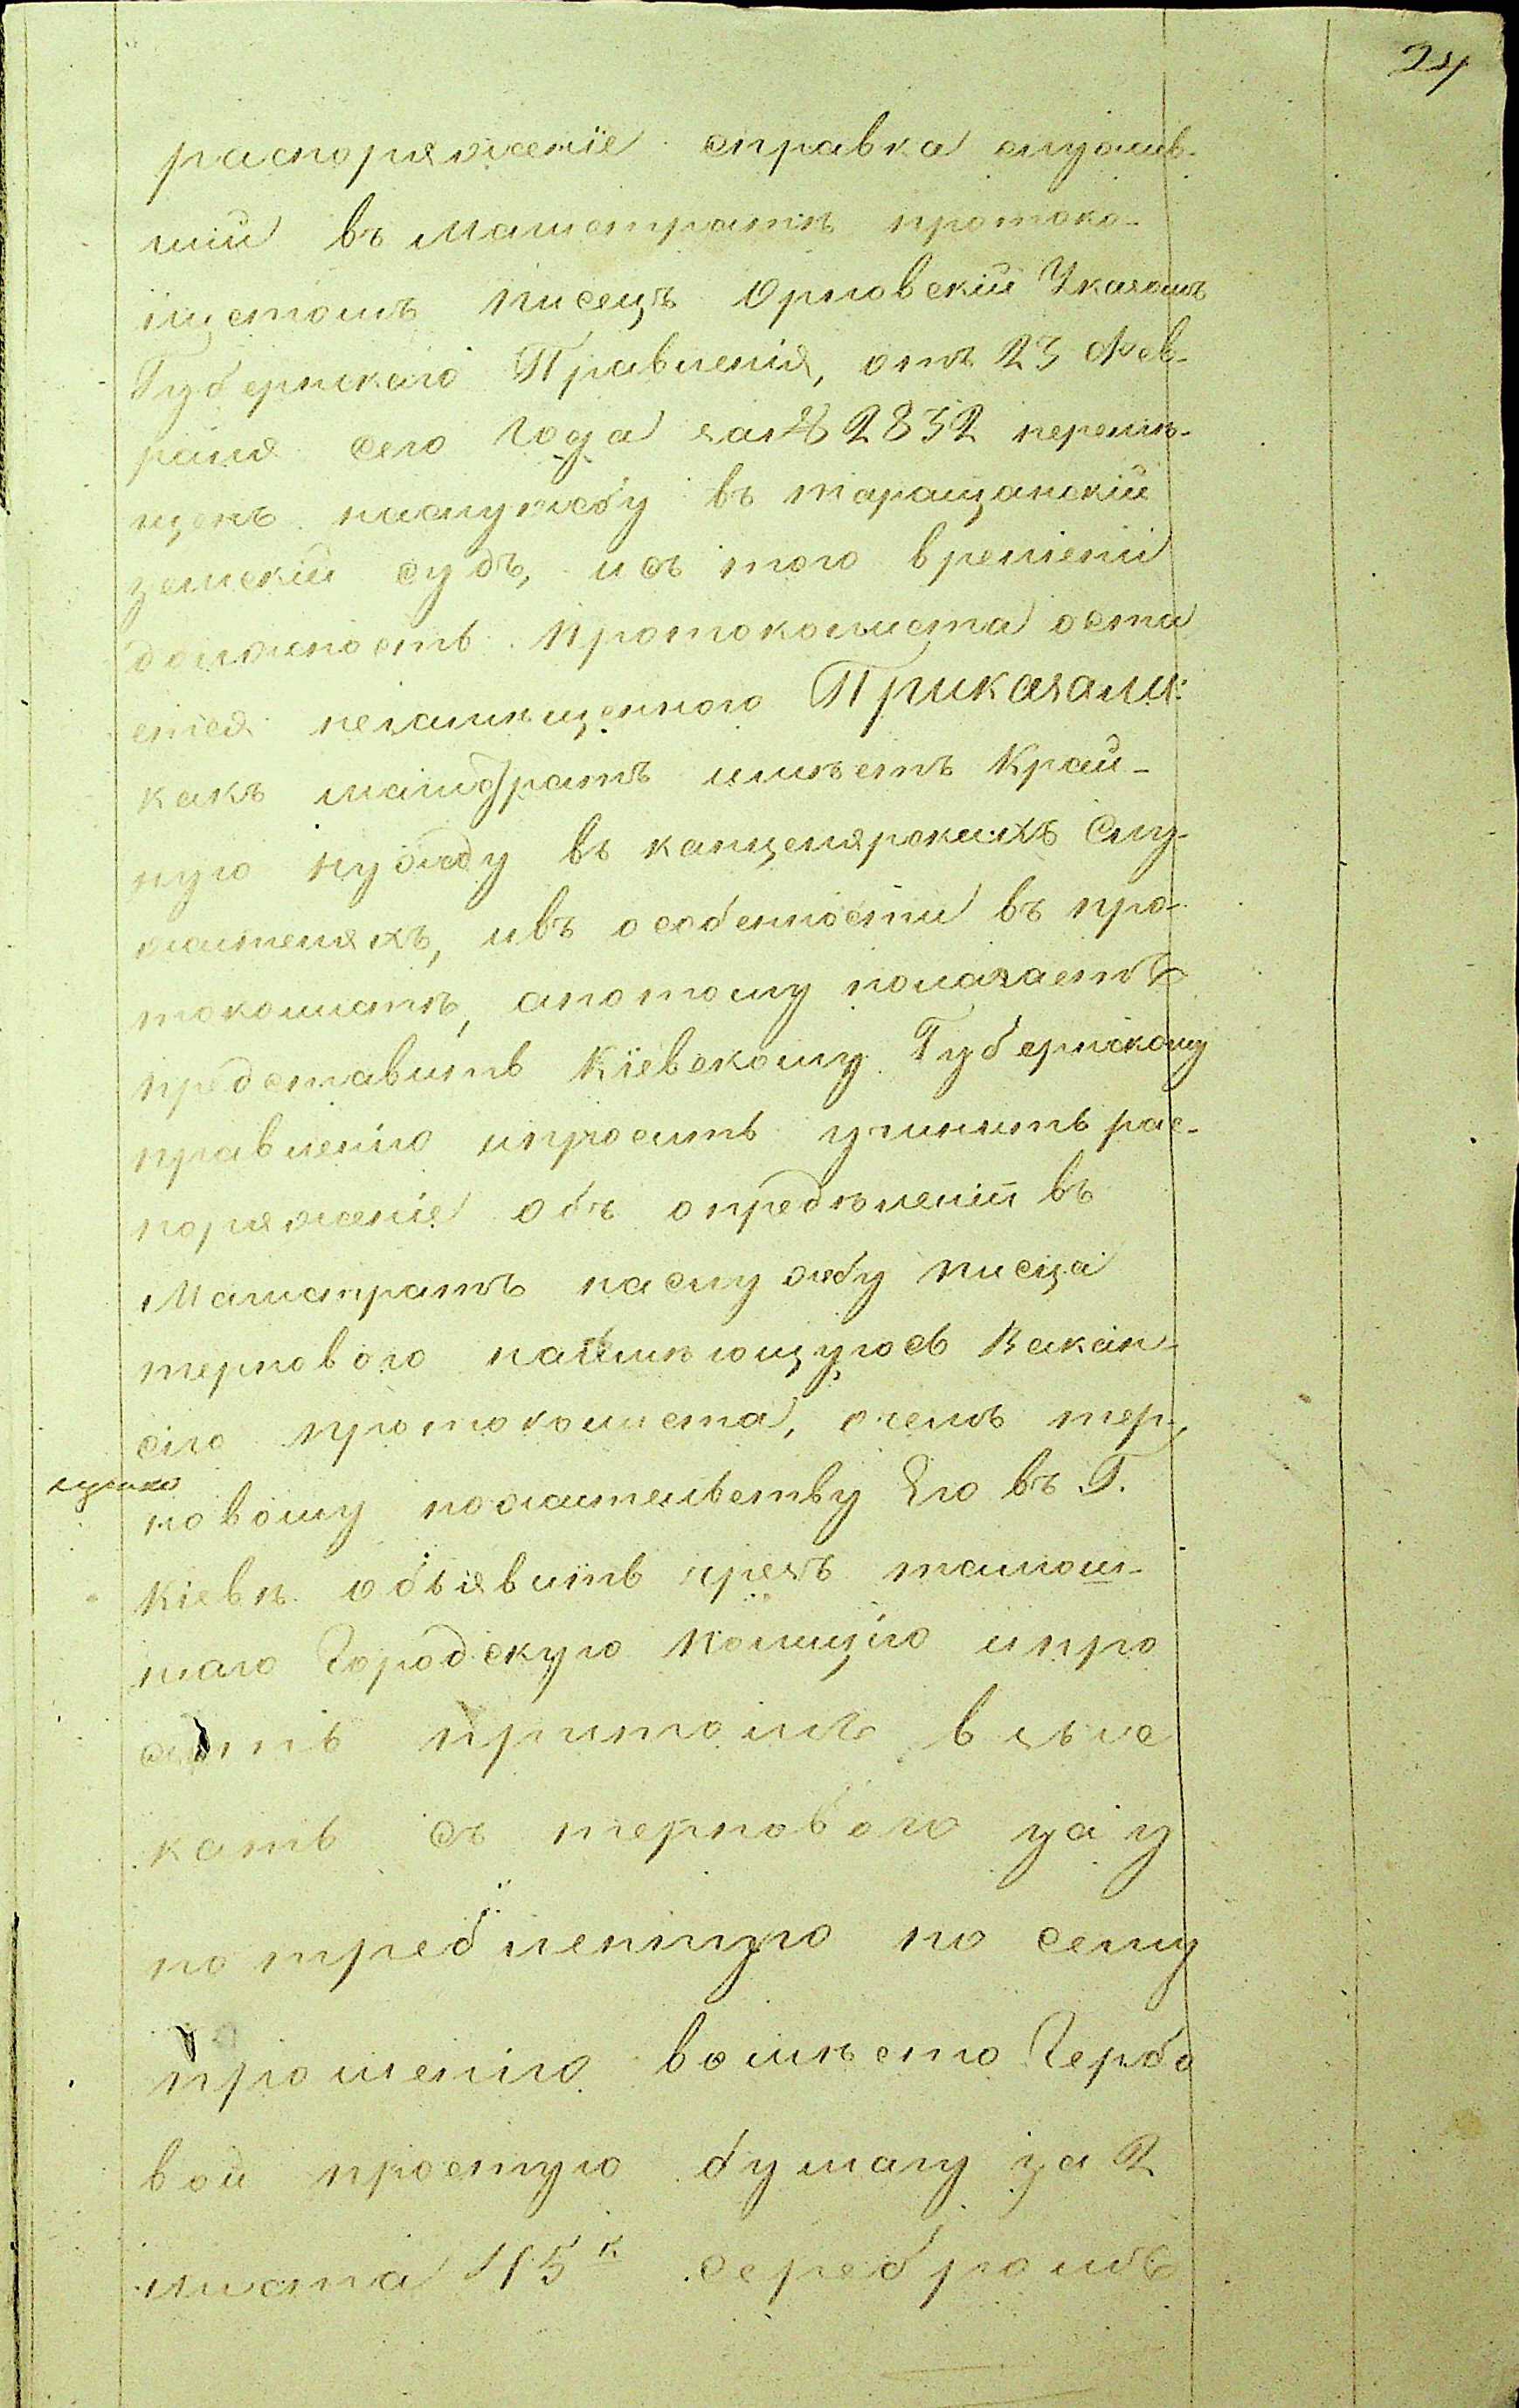 24
распоряженіе справка служив-
шій въ Магистратѣ протоко-
листомъ писецъ Орловскій Указомъ
Губернскаго Правленія, отъ 23 Фев-
раля сего Года за № 2832 перемѣ-
щенъ наслужбу въ таращанскій
земскій судъ, исъ того времени
должность протоколиста оста
ется незамѣщенного Приказали:
какъ магистратъ имѣетъ Край-
ную нужду въ канцелярскихъ Слу-
жителяхъ, ивъ особенности въ про-
токолистѣ, апотому полагаетъ
представить Кіевскому Губернскому
правленію ипросить учинить рас-
поряженіе объ опредѣленіи въ
Магистратъ наслужбу писца
тернового наимѣющуюсь Вакан-
сію протоколиста, очемъ тер-
новому пожительству Его въ Г.
Кіевѣ объявить чрезъ тамош-
наго Городскую полицію ипро
сить притомъ взыс
кать съ тернового за у
потребленную по сему
прошенію вомѣсто Гербо
вой простую бумагу за 2
листа 45 к серебромъ